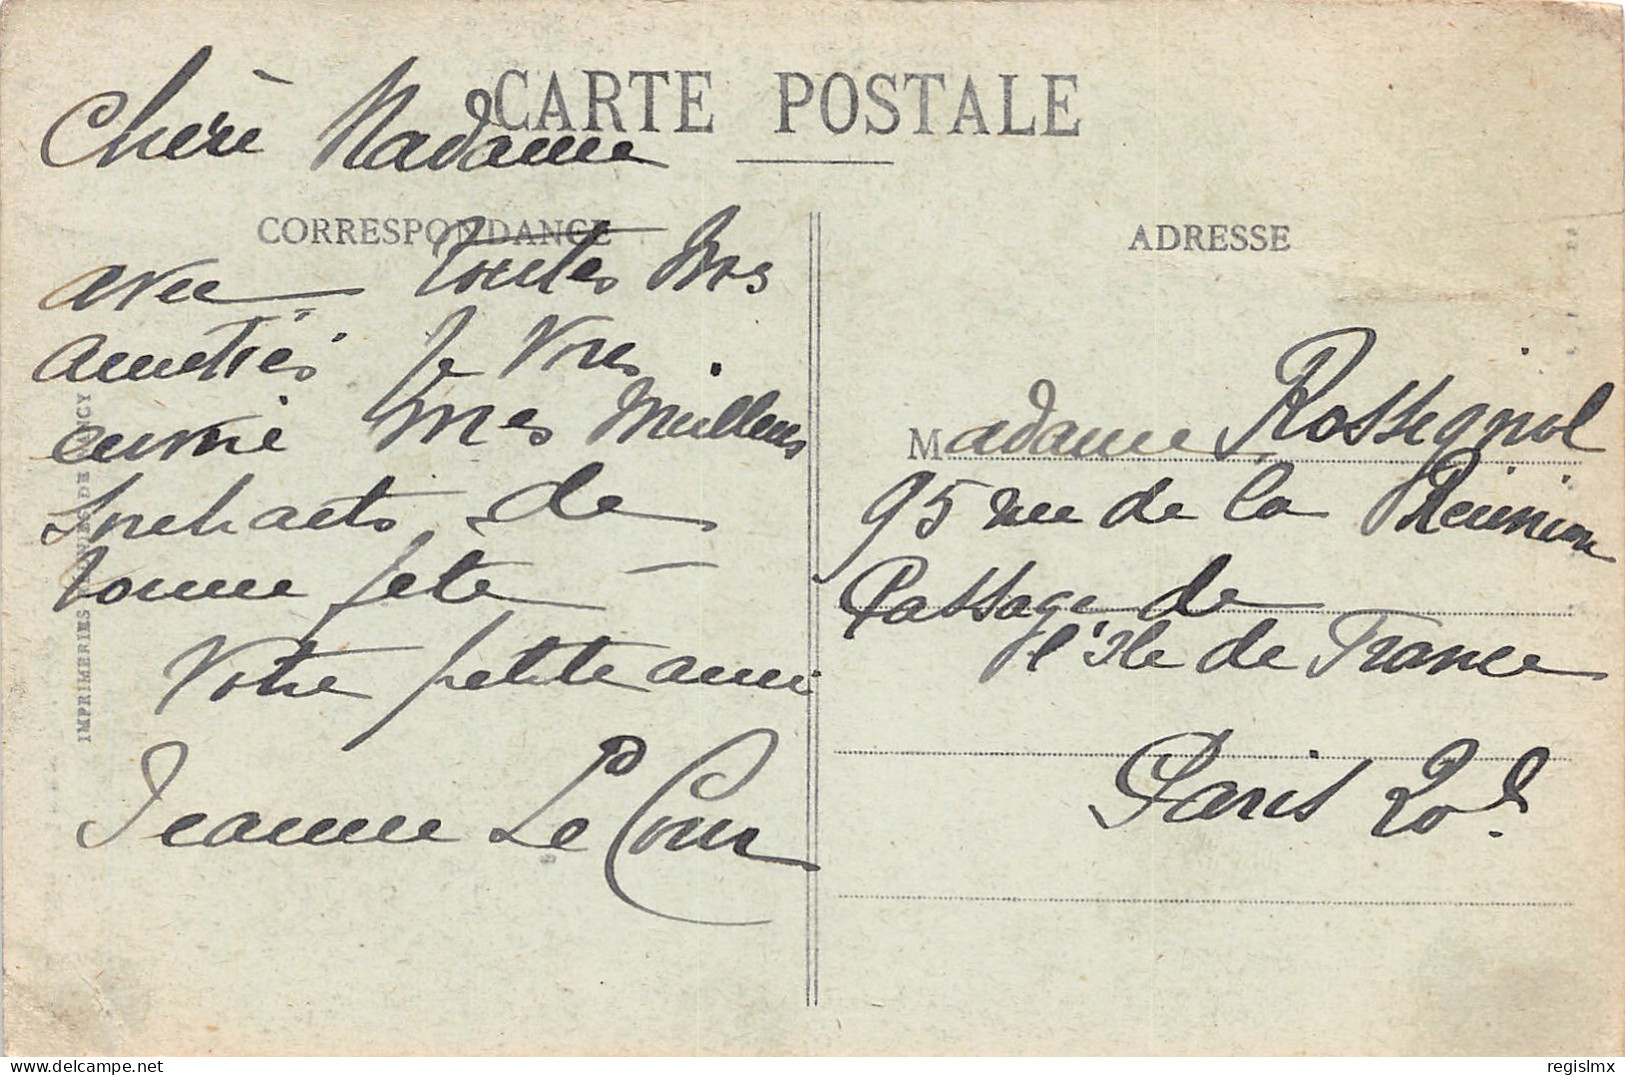 CARTE POSTALE
Chère Madame
CORRESPONDANCE
avec toutes mes
amitiés je vous
envoie mes meilleurs
souhaits de
bonne fête —
Votre petite amie
Jeanne Le Cour
ADRESSE
Madame Rossignol
95 rue de la Réunion
Passage de
l'Ile de France
Paris 20e.
IMPRIMERIES RÉUNIES DE NANCY
regislmx